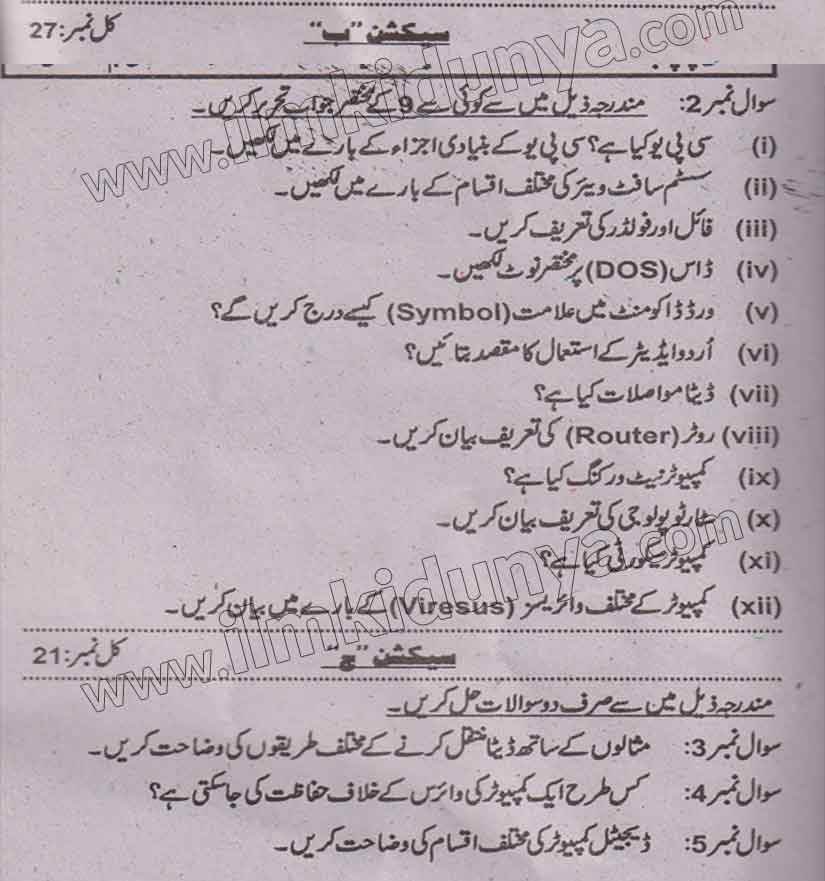 سیکشن "ب" کل نمبر: 27
سوال نمبر 2: مندرجہ ذیل میں سے کوئی سے 9 کے مختصر جواب تحریر کریں۔
(i) سی پی یو کیا ہے؟ سی پی یو کے بنیادی اجزاء کے بارے میں لکھیں۔
(ii) سسٹم سافٹ ویئر کی مختلف اقسام کے بارے میں لکھیں۔
(iii) فائل اور فولڈر کی تعریف کریں۔
(iv) ڈاس (DOS) پر مختصر نوٹ لکھیں۔
(v) ورڈ ڈاکومنٹ میں علامت (Symbol) کیسے درج کریں گے؟
(vi) اُردو ایڈیٹر کے استعمال کا مقصد بتائیں؟
(vii) ڈیٹا مواصلات کیا ہے؟
(viii) روٹر (Router) کی تعریف بیان کریں۔
(ix) کمپیوٹر نیٹ ورکنگ کیا ہے؟
(x) سٹار ٹوپولوجی کی تعریف بیان کریں۔
(xi) کمپیوٹر سکیورٹی کیا ہے؟
(xii) کمپیوٹر کے مختلف وائریسز (Viresus) کے بارے میں بیان کریں۔
سیکشن "ج" کل نمبر: 21
مندرجہ ذیل مین سے صرف دو سوالات حل کریں۔
سوال نمبر 3: مثالوں کے ساتھ ڈیٹا منتقل کرنے کے مختلف طریقوں کی وضاحت کریں۔
سوال نمبر 4: کس طرح ایک کمپیوٹر کی وائرس کے خلاف حفاظت کی جاسکتی ہے؟
سوال نمبر 5: ڈیجیٹل کمپیوٹر کی مختلف اقسام کی وضاحت کریں۔
www.ilmkidunya.com
www.ilmkidunya.com